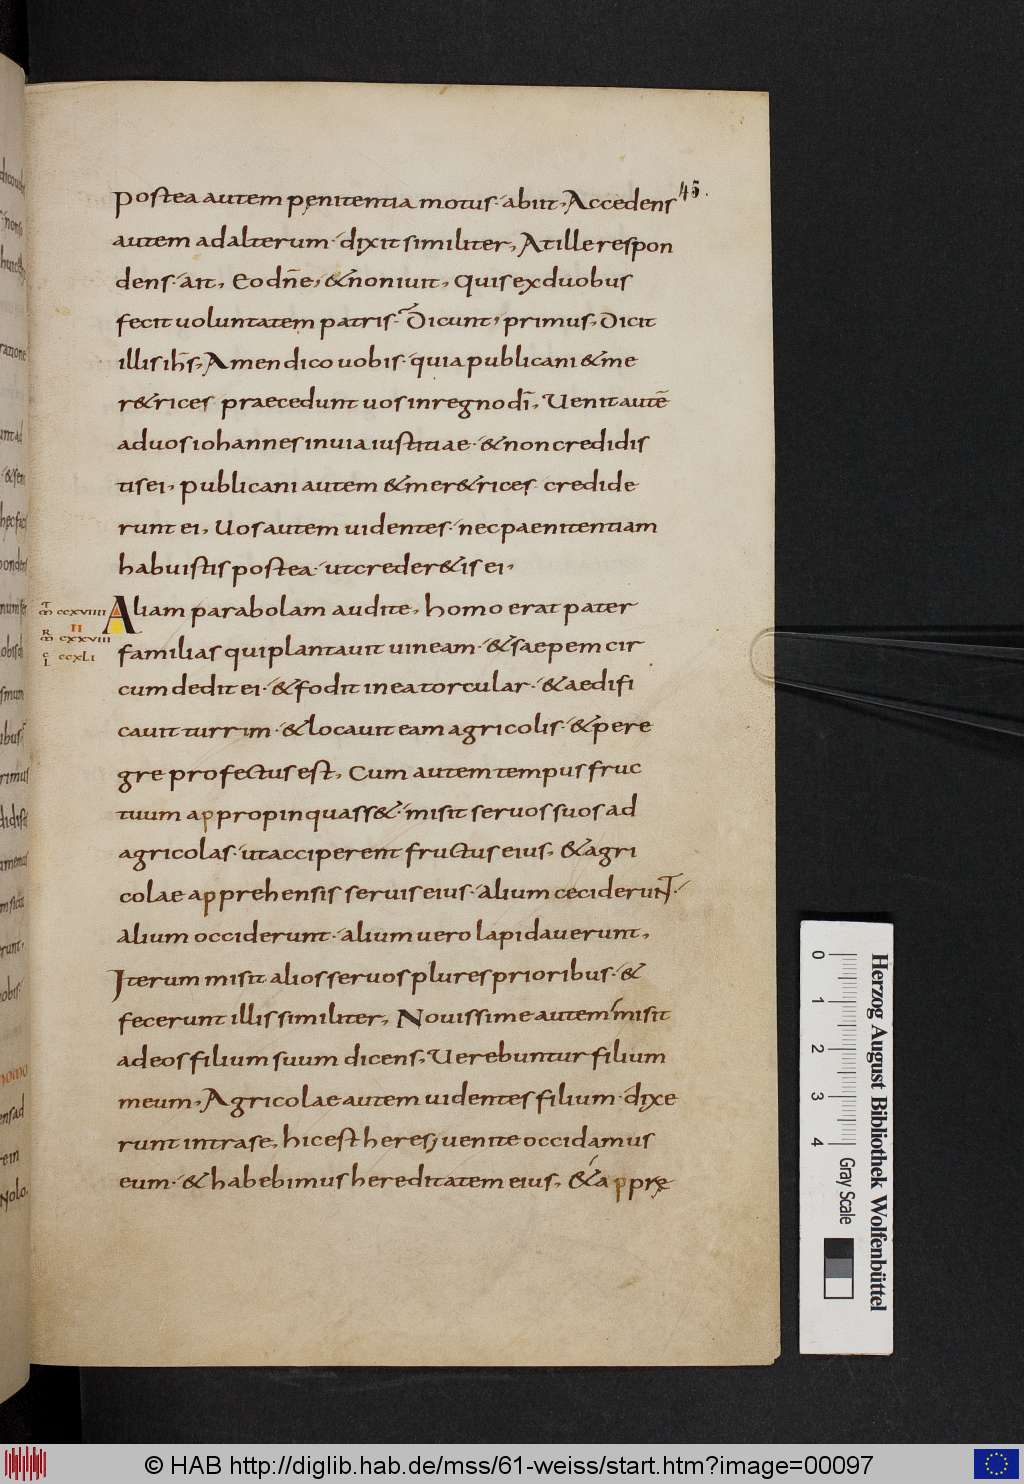 45.
postea autem pęnitentia motus· abiit, Accedens
autem ad alterum· dixit similiter, At ille respon
dens· ait, Eo dn̄e, & non iuit, Quis ex duobus
fecit uoluntatem patris· Dicunt, primus, Dicit
illis ih̄s, Amen dico uobis· quia publicani & me
r&rices praecedunt uos in regno dī, Uenit autē
ad uos iohannes in uia iustitiae· & non credidis
tis ei, publicani autem & mer&rices credide
runt ei, Uos autem uidentes· nec paenitentiam
habuistis postea· ut creder&is ei,
Aliam parabolam audite, homo erat pater
familias qui plantauit uineam· & saepem cir
cumdedit ei· & fodit in ea torcular· & aedifi
cauit turrim· & locauit eam agricolis· & pere
gre profectus est, Cum autem tempus fruc
tuum appropinquass&· misit seruos suos ad
agricolas· ut acciperent fructus eius, & agri
colae apprehensis seruis eius· alium ceciderunt·
alium occiderunt· alium uero lapidauerunt,
Iterum misit alios seruos plures prioribus· &
fecerunt illis similiter, Nouissime autem misit
ad eos filium suum dicens, Uerebuntur filium
meum, Agricolae autem uidentes filium· dixe
runt intra se, hic est heres; uenite occidamus
eum· & habebimus hereditatem eius, & apprę
T
m ccxviiii
II
R
m cxxviii
c
L ccxli
Herzog August Bibliothek Wolfenbüttel
0 1 2 3 4 Gray Scale
© HAB http://diglib.hab.de/mss/61-weiss/start.htm?image=00097